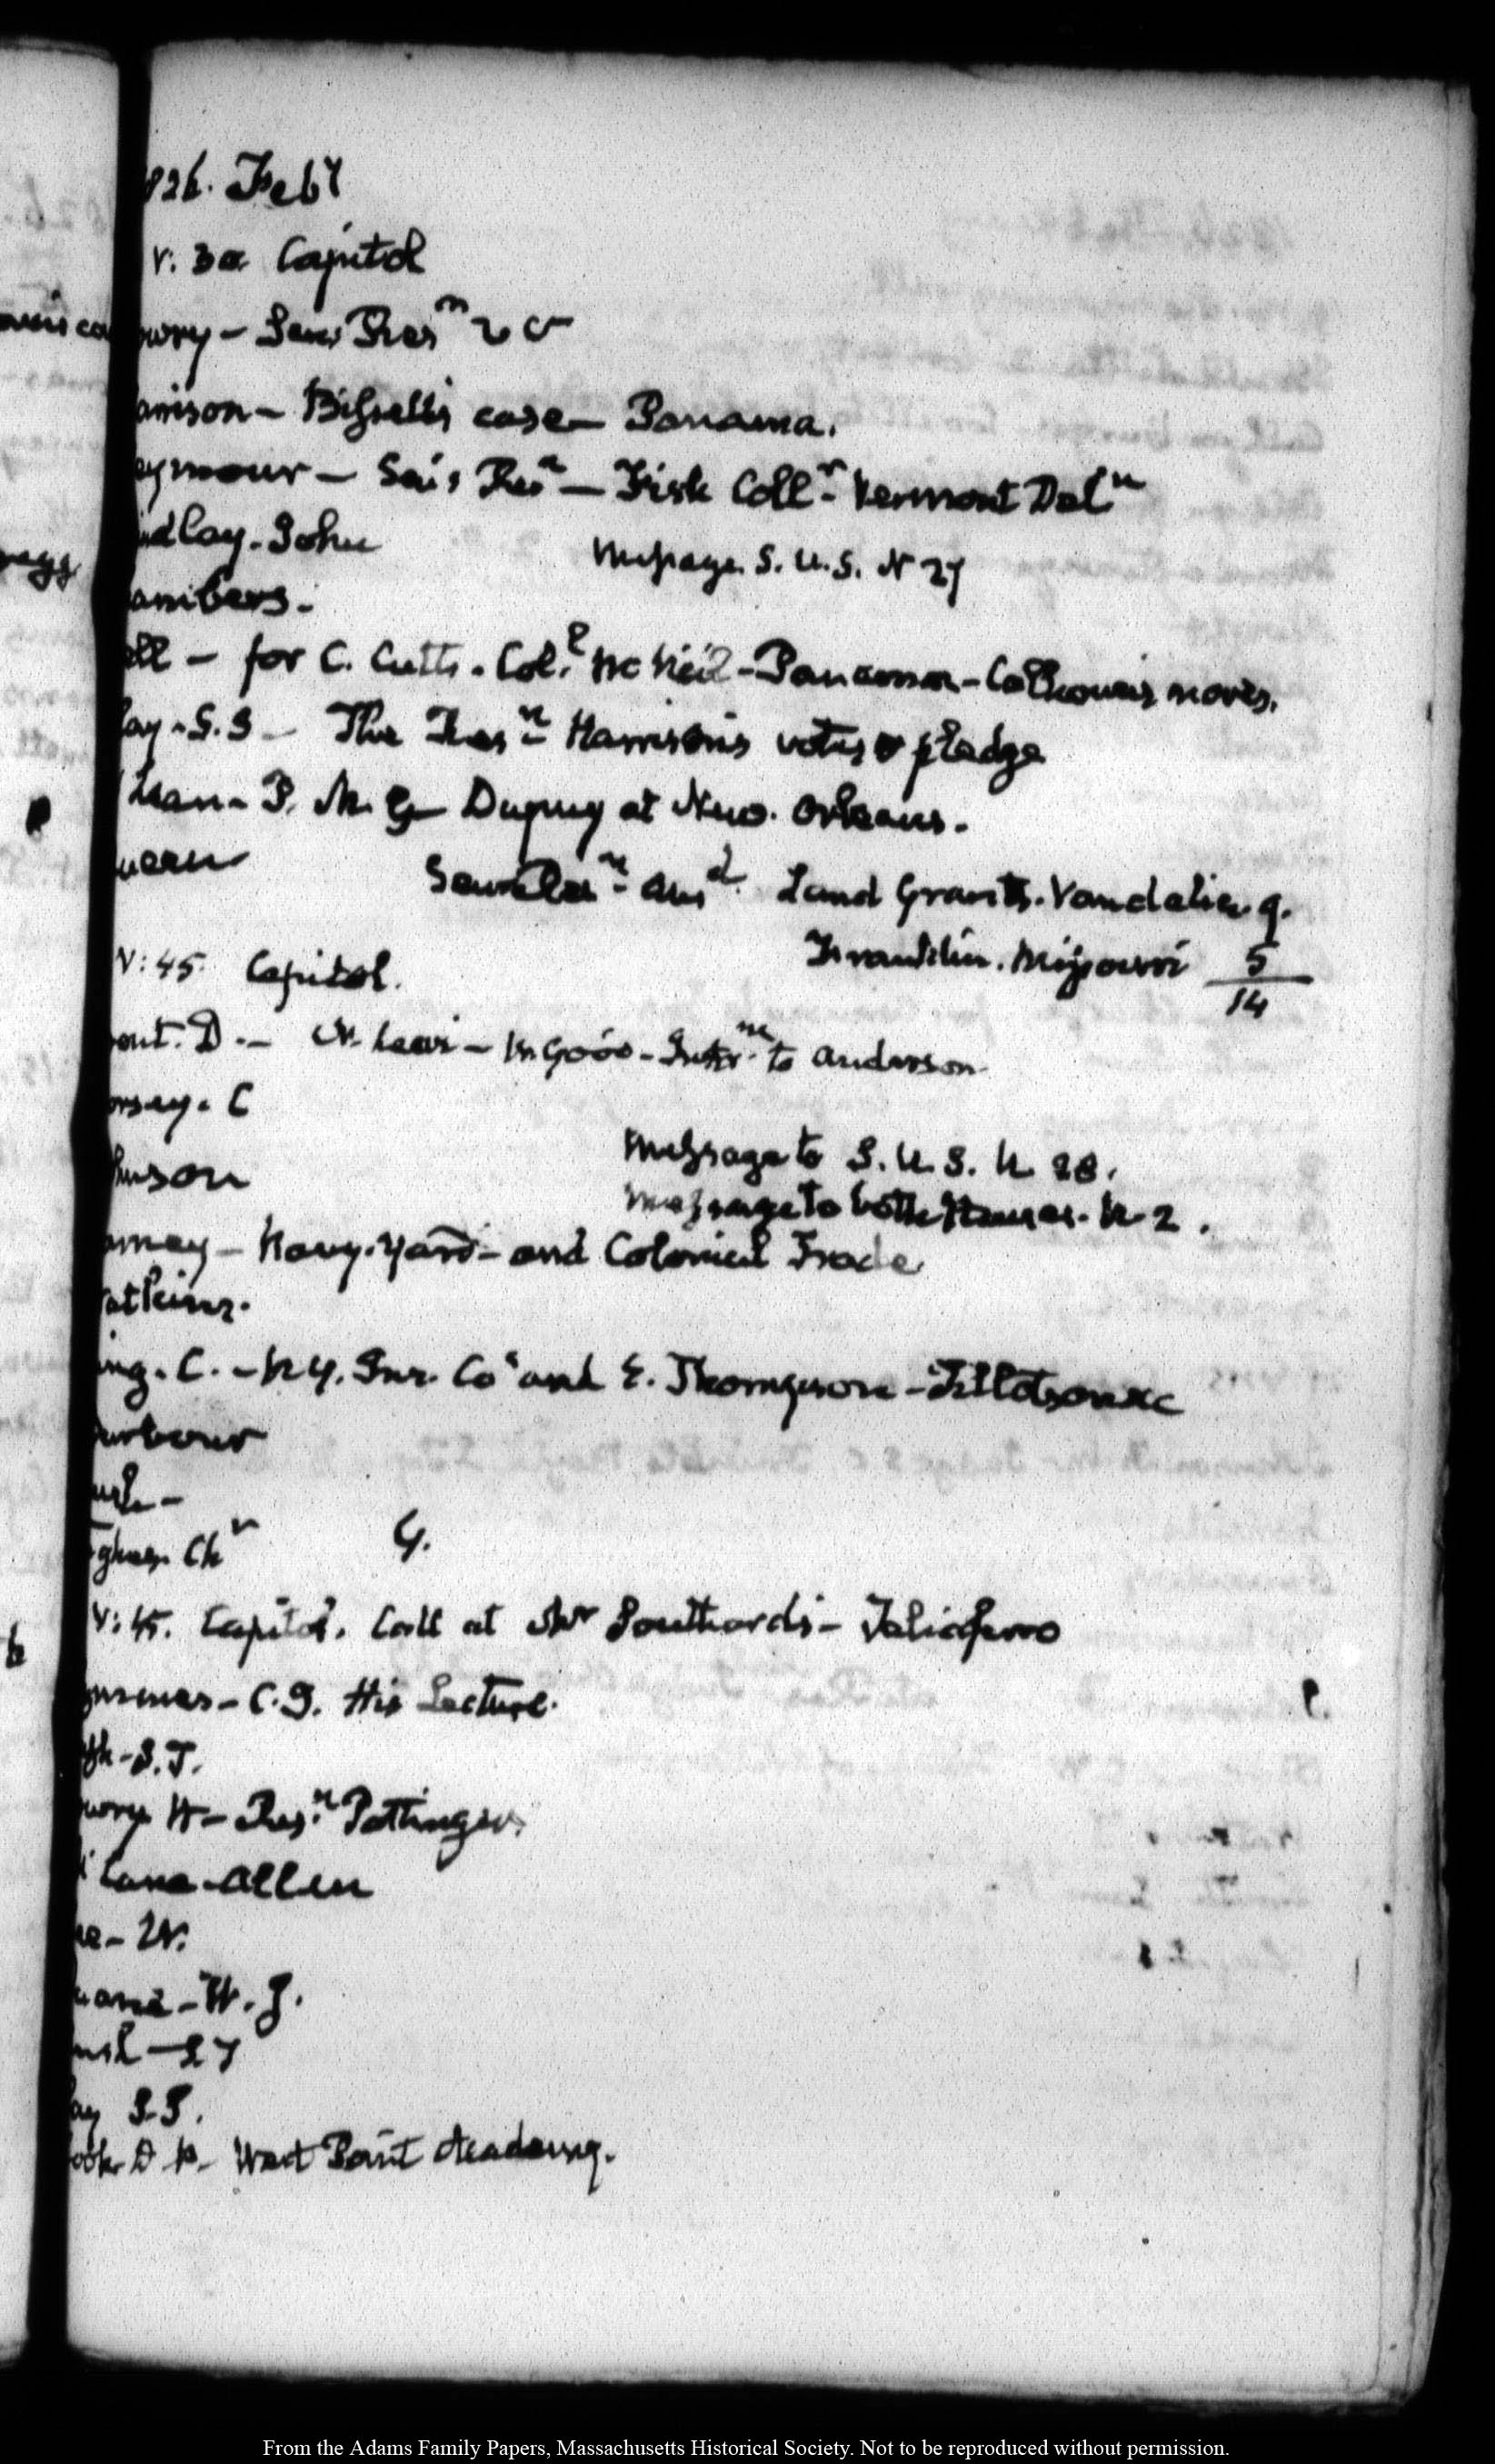 826. Feby
V: 30 Capitol
owry - Sen's Resn &c
arrison - Bissell's case - Panama.
eymour - Sen's Resn - Fisk Collr Vermont Deln
ndlay. John
Message. S. U.S. N 27
ambers.
ell - for C. Cutts. Coll McNeil - Panama - Calhoun's moves.
lay. S.S - The Resn Harrison's votes & pledge
Lean - P. M. G Dupuy at New. Orleans.
Sen's Resn ansd Land Grants. Vandalia 9.
Franklin. Missouri 5
14
V: 45. Capitol.
to Anderson
orsey. C
Message to S. U. S. N 28.
hnson
Message to both Houses. N 2.
orney - Navy-Yard - and Colonial Trade
atkins.
ing. C. - N.Y. Ins. Cos and E. Thompson - Tillotson &c
arbour
ush -
ghes. Chr
G.
V: 45. Capitol. Call at Mr Southard's - Taliaferro
C.S. His Lecture.
S.T.
owry W - Resn Pottinger.
Lane - Allen
W.
uane - W. J.
ay S.S.
ook D P - West Point Academy.
From the Adams Family Papers, Massachusetts Historical Society. Not to be reproduced without permission.